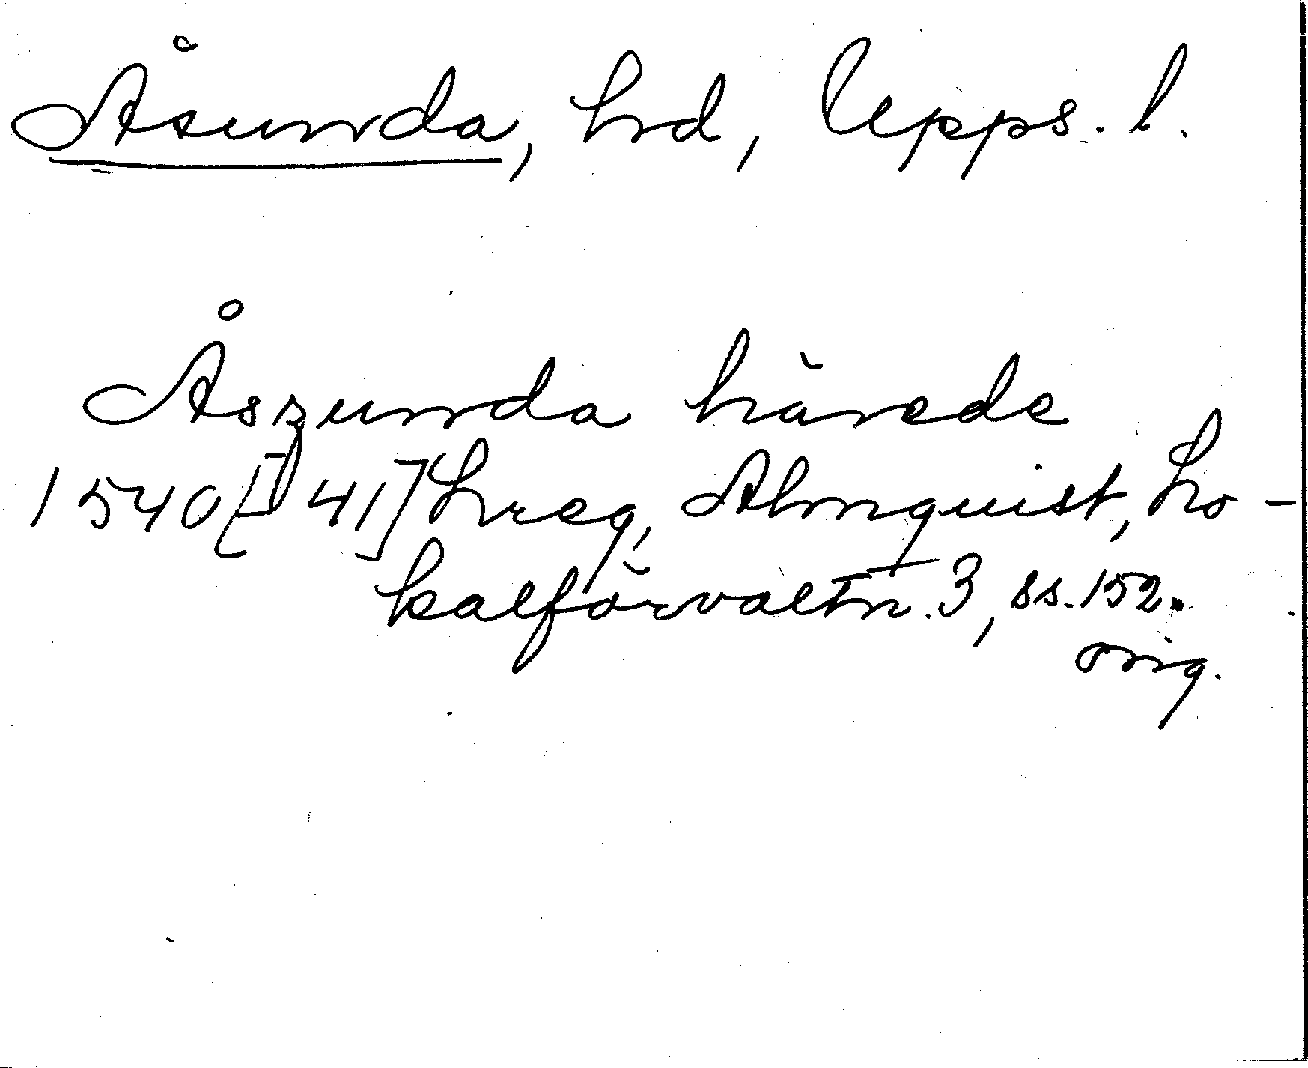 Åsunda, hd, Upps. l.
Åszunda härede
1540[-41] Lreg, Almquist, Lo-
kalförvaltn. 3, ss. 152.
orig.